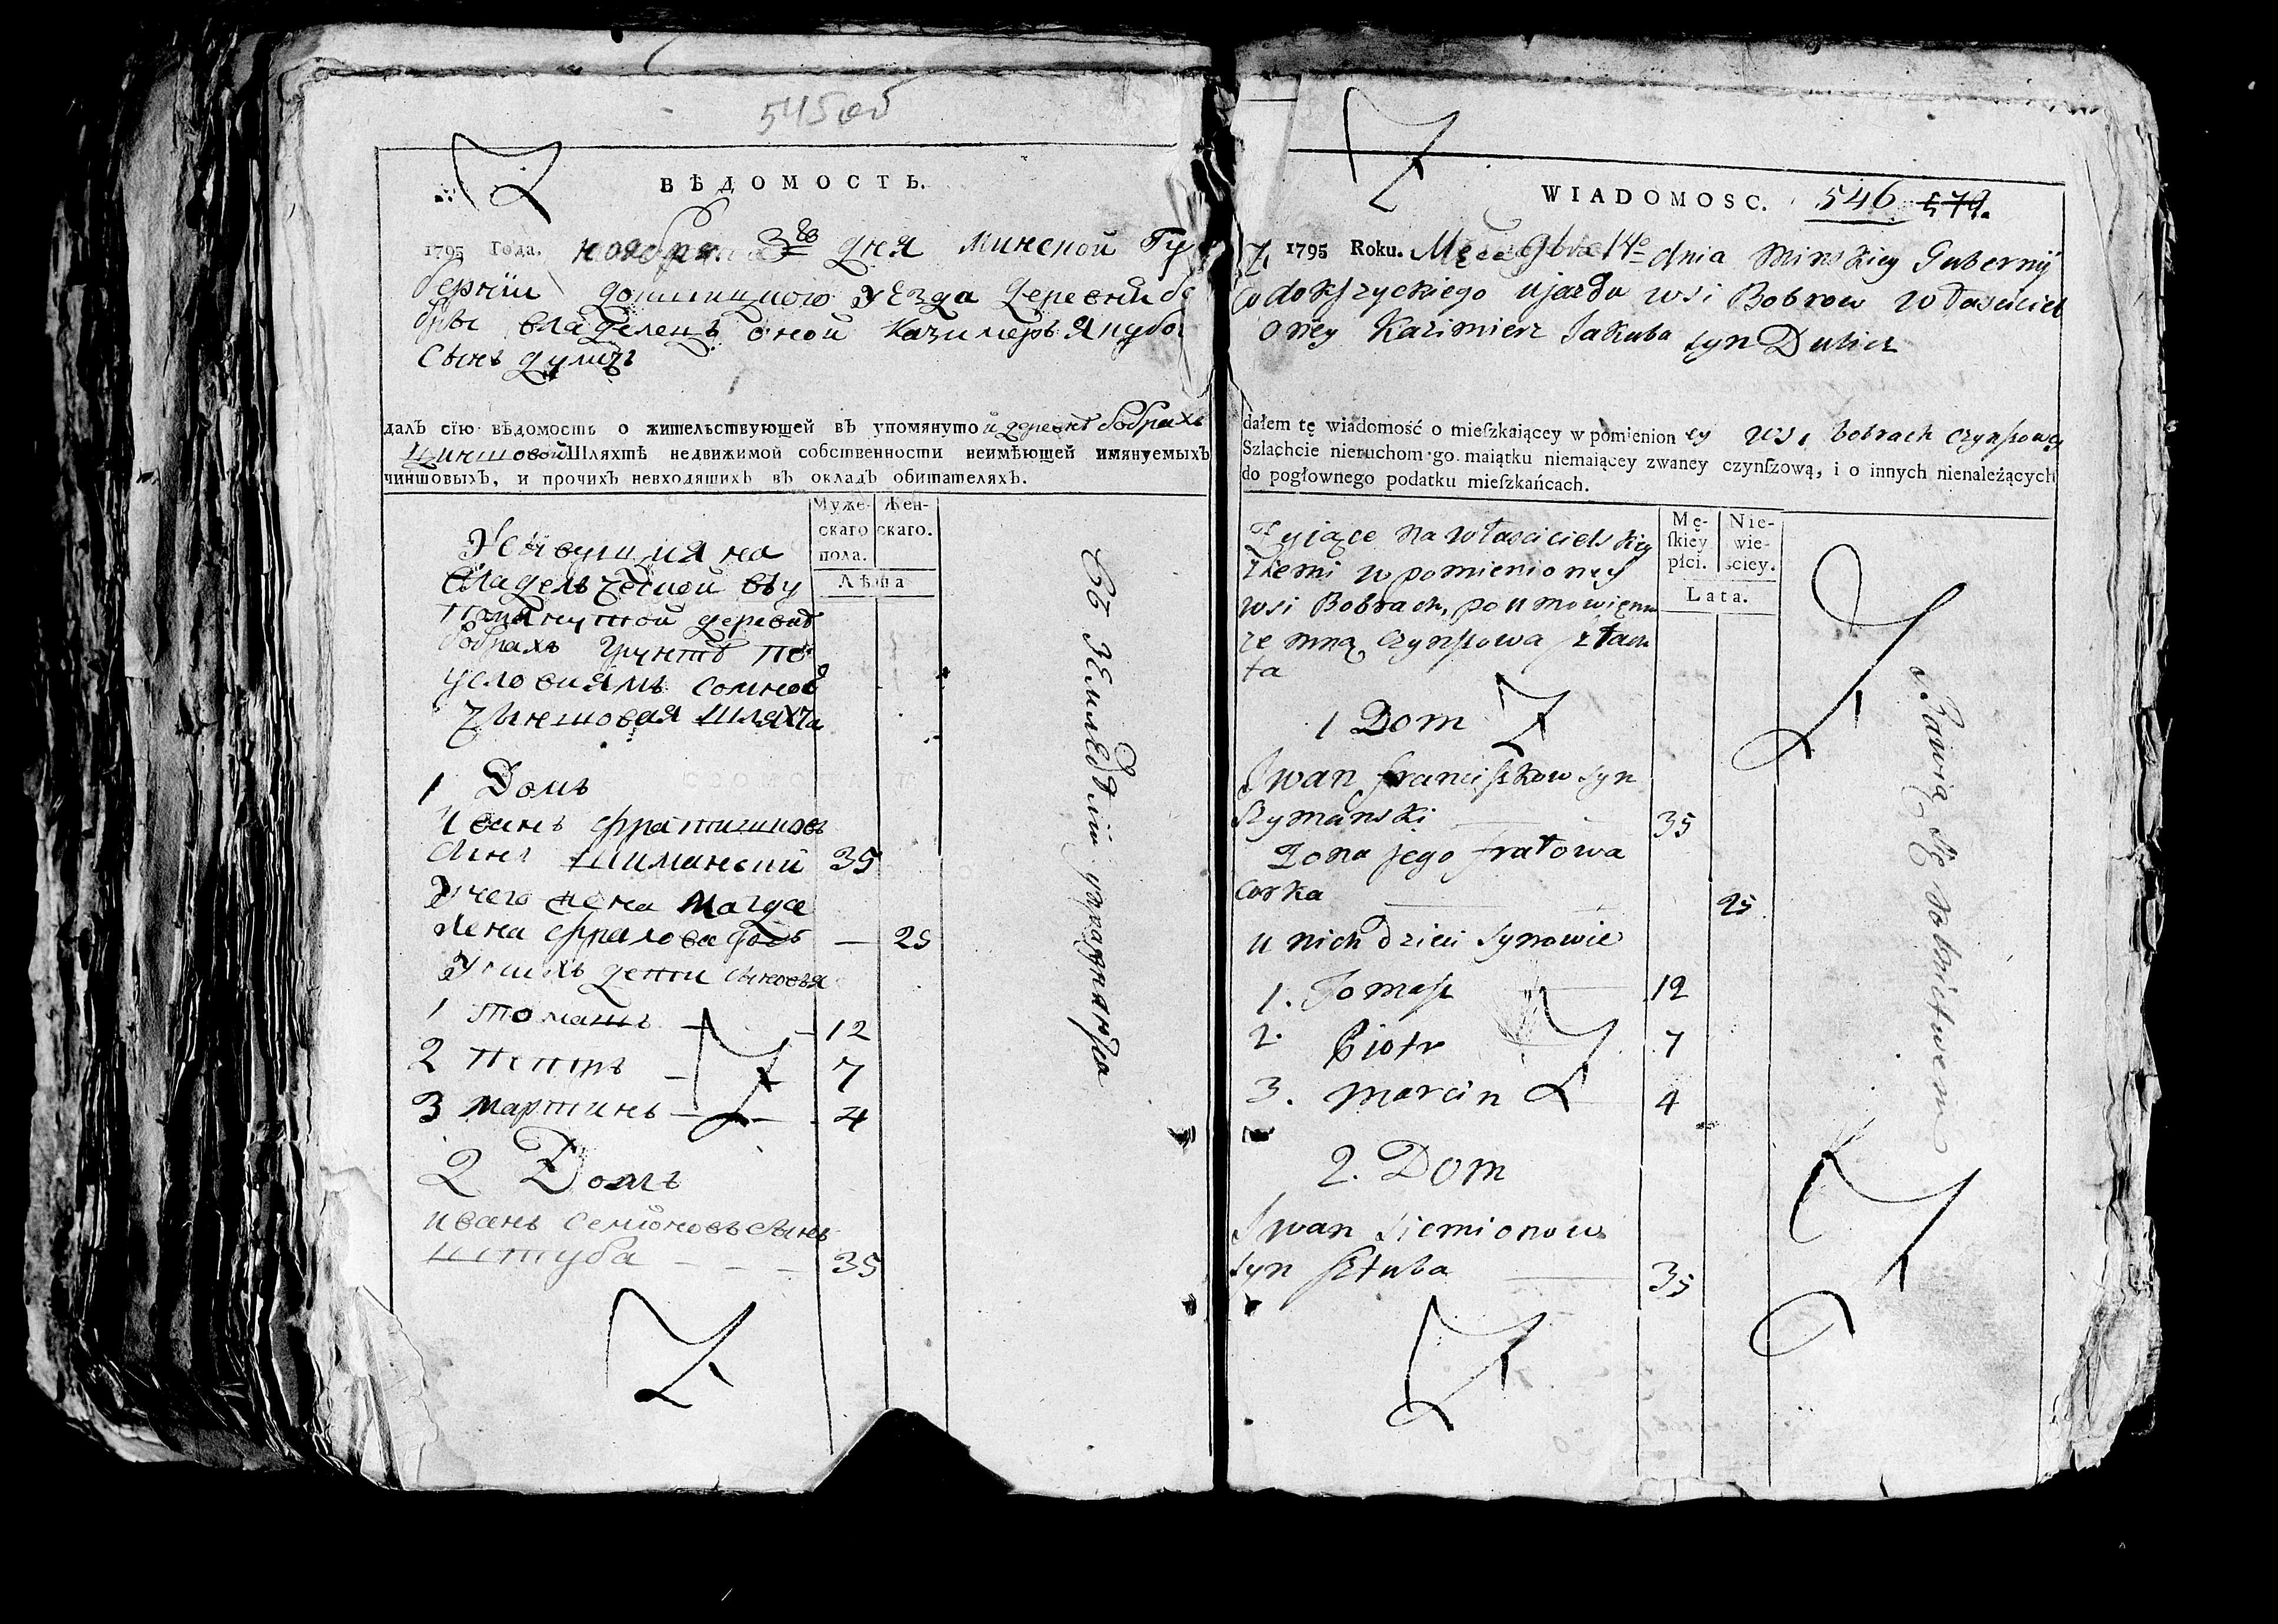 545об
ВѢДОМОСТЬ.
1795 Года. ноября 3го дня Минской Гу
берніи докшицкого уезда деревни бо
бръ владелецъ оной Казимеръ Якубо
Сынъ дулич
далъ сїю вѣдомость о жительствующей въ упомянутой деревнѣ бобрахъ
чиншовой Шляхтѣ недвижимой собственности неимѣющей имянуемыхъ
чиншовыхъ, и прочихъ невходящихъ въ окладъ обитателяхъ.
Муже- Жен-
скаго скаго.
пола.
Лѣта
Живущия на
владельческой въ у
помянутой деревнѣ
бобрахъ грунтѣ по
условиямъ сомной
чиншовая шляхта
1 Домъ
Иванъ францишковъ
сынъ Шиманский 35
У него жена Магда
лена фралова дочь — 25
У нихъ дети сыновья
1 Томашъ — 12
2 Петръ — 7
3 Мартинъ — 4
2 Домъ
иванъ семионовъ сынъ
штуба — — — 35
въ земледѣлiи упражняются
WIADOMOSC. 546 579.
1795 Roku. 9bra 14º dnia Minskiey Gubernij
dokszyckiego ujazdu wsi Bobrow własciciel
oney Kazimierz Jakuba syn Dulicz
dałem tę wiadomość o mieſzkaiącey w pomienioney wsi bobrach czynszowey
Szlachcie nieruchom·go maiątku niemaiącey zwaney czynſzową, i o innych nienależących
do pogłownego podatku mieſzkańcach.
Mę- Nie-
ſkiey wie-
płci. ściey.
Lata.
Zyjące na własicielskiey
ziemi w pomienioney
wsi Bobrach, po umowieniu
ze mną czynszowa szlach
ta
1 Dom
Jwan franciszkow syn
Szymanski 35
Zona jego frałowa
corka 25
u nich dzieci synowie
1. Tomasz 12
2. Piotr 7
3. Marcin 4
2. Dom
Jwan Siemionow
syn Sztuba 35
Bawią się rolnictwem